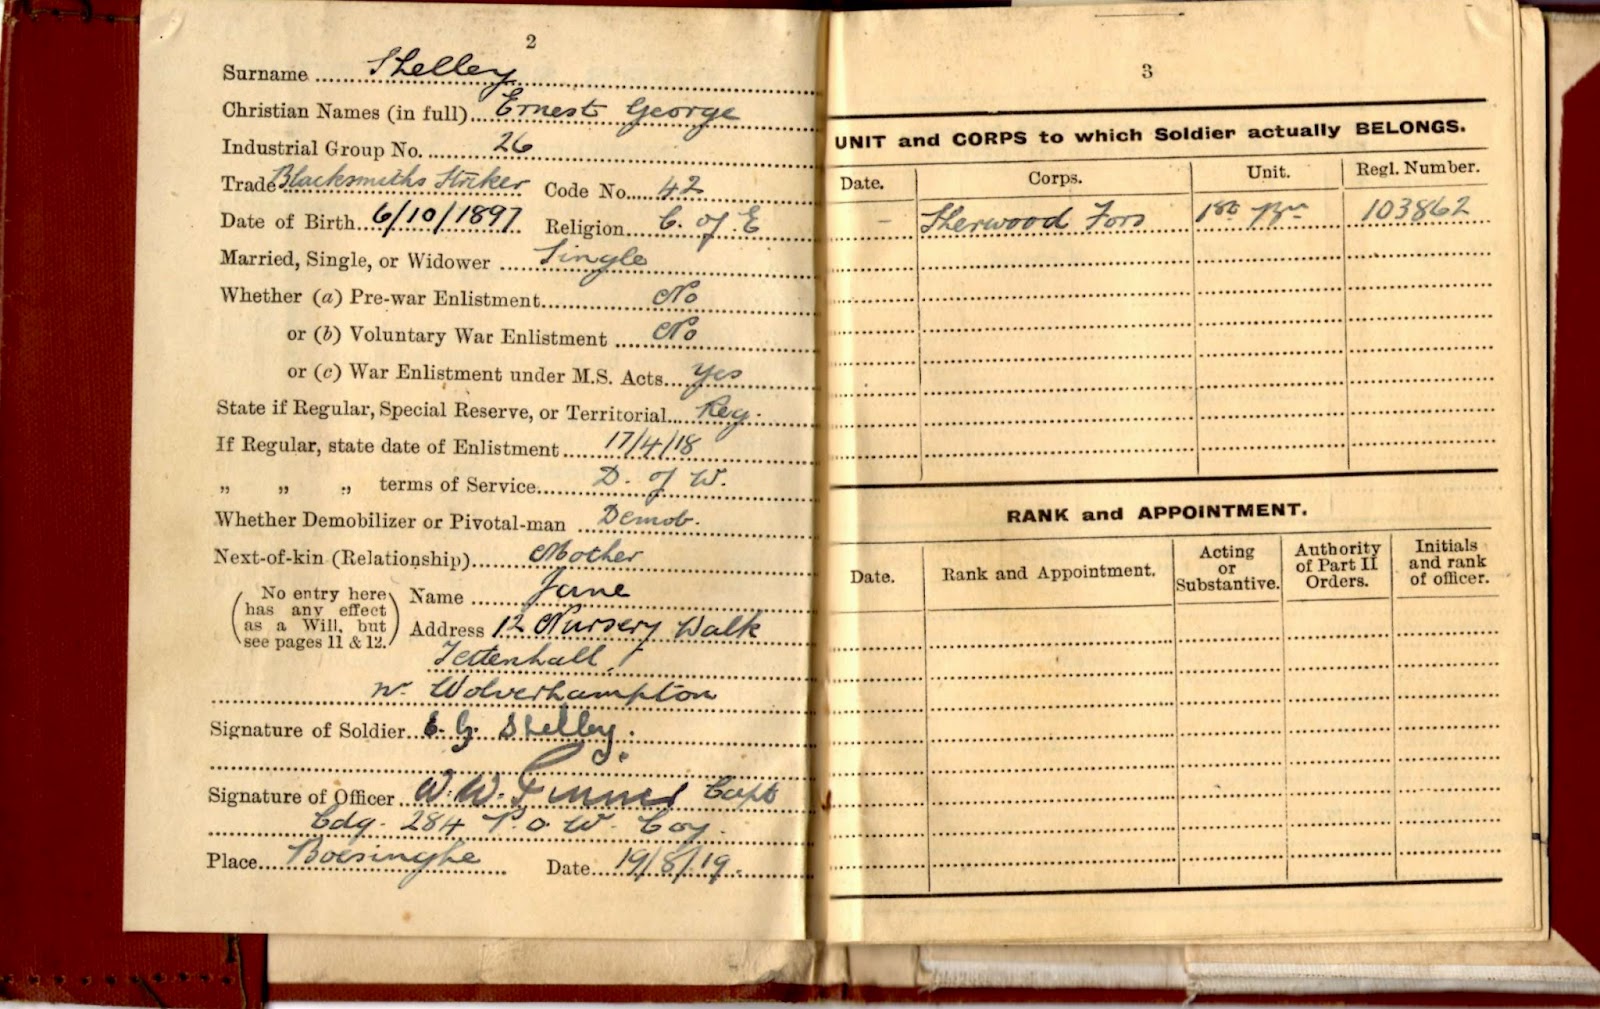 2
Surname Shelley
Christian Names (in full) Ernest George
Industrial Group No. 26
Trade Blacksmiths Striker Code No. 42
Date of Birth 6/10/1897 Religion C. of E
Married, Single, or Widower Single
Whether (a) Pre-war Enlistment No
or (b) Voluntary War Enlistment No
or (c) War Enlistment under M.S. Acts yes
State if Regular, Special Reserve, or Territorial Reg.
If Regular, state date of Enlistment 17/4/18
„ „ „ terms of Service D. of W.
Whether Demobilizer or Pivotal-man Demob.
Next-of-kin (Relationship) Mother
(No entry here has any effect as a Will, but see pages 11 & 12.)
Name Jane
Address 12 Nursery Walk
Tettenhall.
Nr. Wolverhampton
Signature of Soldier E. G. Shelley.
Signature of Officer W. W. Capt
Cdg. 284 P. o W. Coy.
Place Boesinghe Date 19/8/19.
3
UNIT and CORPS to which Soldier actually BELONGS.
Date. Corps. Unit. Regl. Number.
– Sherwood Fors 1st Bn 103862
RANK and APPOINTMENT.
Date. Rank and Appointment. Acting or Substantive. Authority of Part II Orders. Initials and rank of officer.